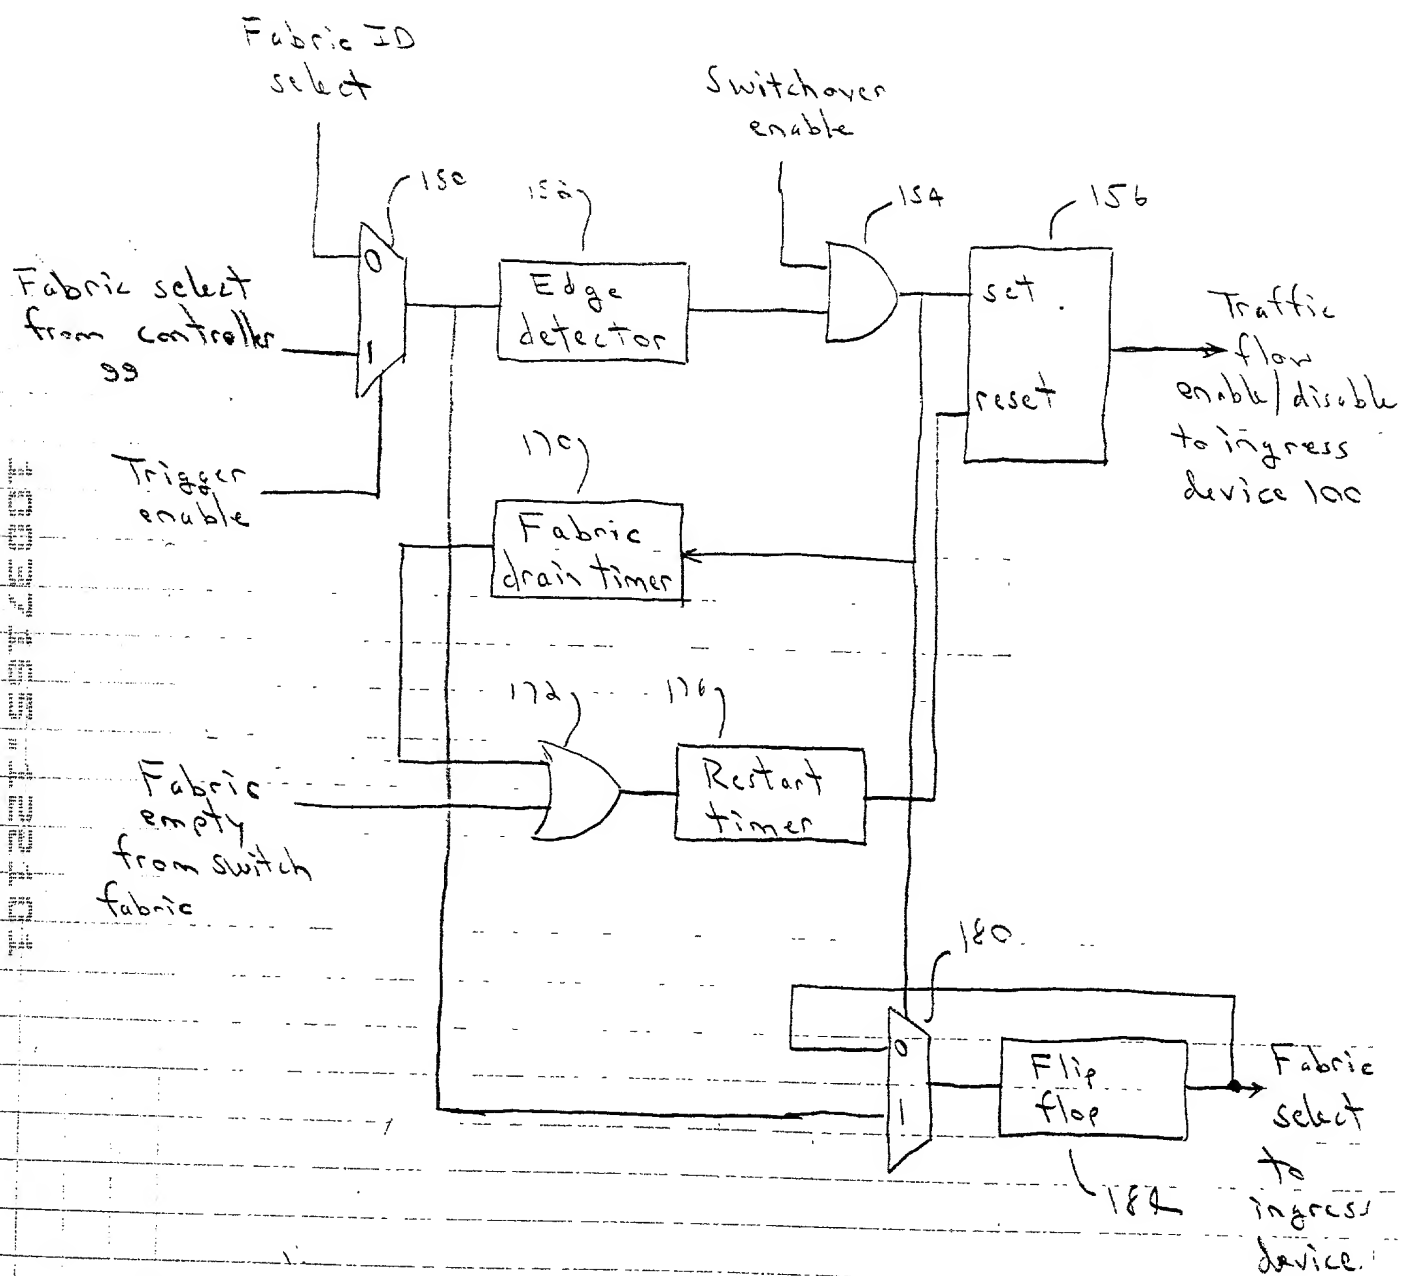 Fabric ID
select
Switchover
enable
150
152
154
156
0
1
Fabric select
from controller
99
Edge
detector
set
reset
Traffic
flow
enable/disable
to ingress
device 100
Trigger
enable
170
Fabric
drain timer
172
176
Fabric
empty
from switch
fabric
Restart
timer
180
0
1
Flip
flop
182
Fabric
select
to
ingress
device